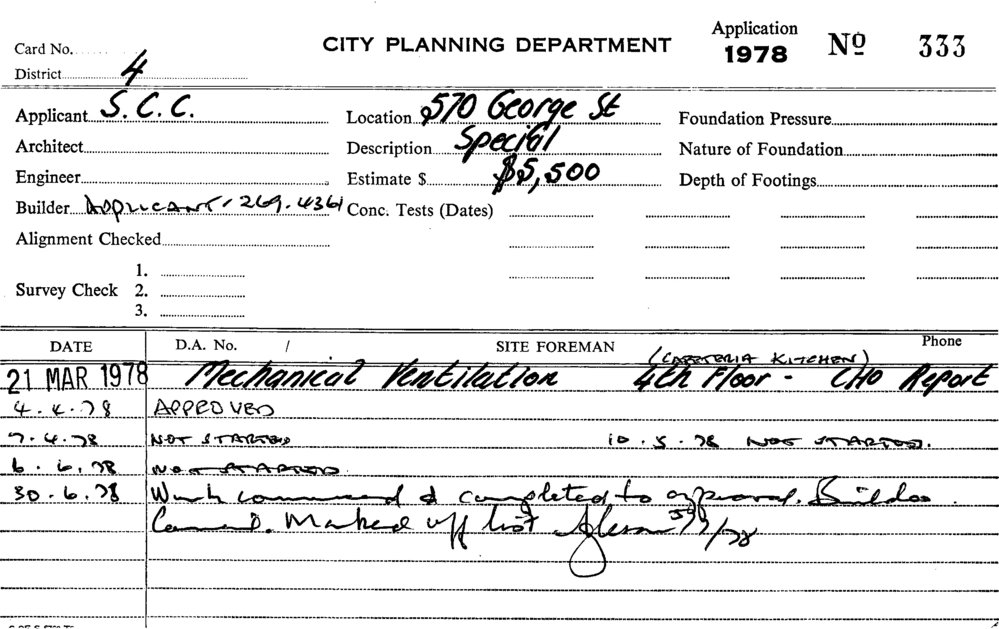 Card No.
CITY PLANNING DEPARTMENT
Application
1978
Nº 333
District 4
Applicant S. C. C.
Location 570 George St
Foundation Pressure
Architect
Description Special
Nature of Foundation
Engineer
Estimate $ $5,500
Depth of Footings
Builder APPLICANT, 269.4361
Conc. Tests (Dates)
Alignment Checked
Survey Check
1.
2.
3.
DATE
D.A. No. /
SITE FOREMAN
Phone
(CAFETERIA KITCHEN)
21 MAR 1978 Mechanical Ventilation 4th Floor - CHO Report
4.4.78 APPROVED
7.4.78 NOT STARTED 10.5.78 NOT STARTED.
6.6.78 NOT STARTED.
30.6.78 Work commenced & completed to approval.
Marked off list /78